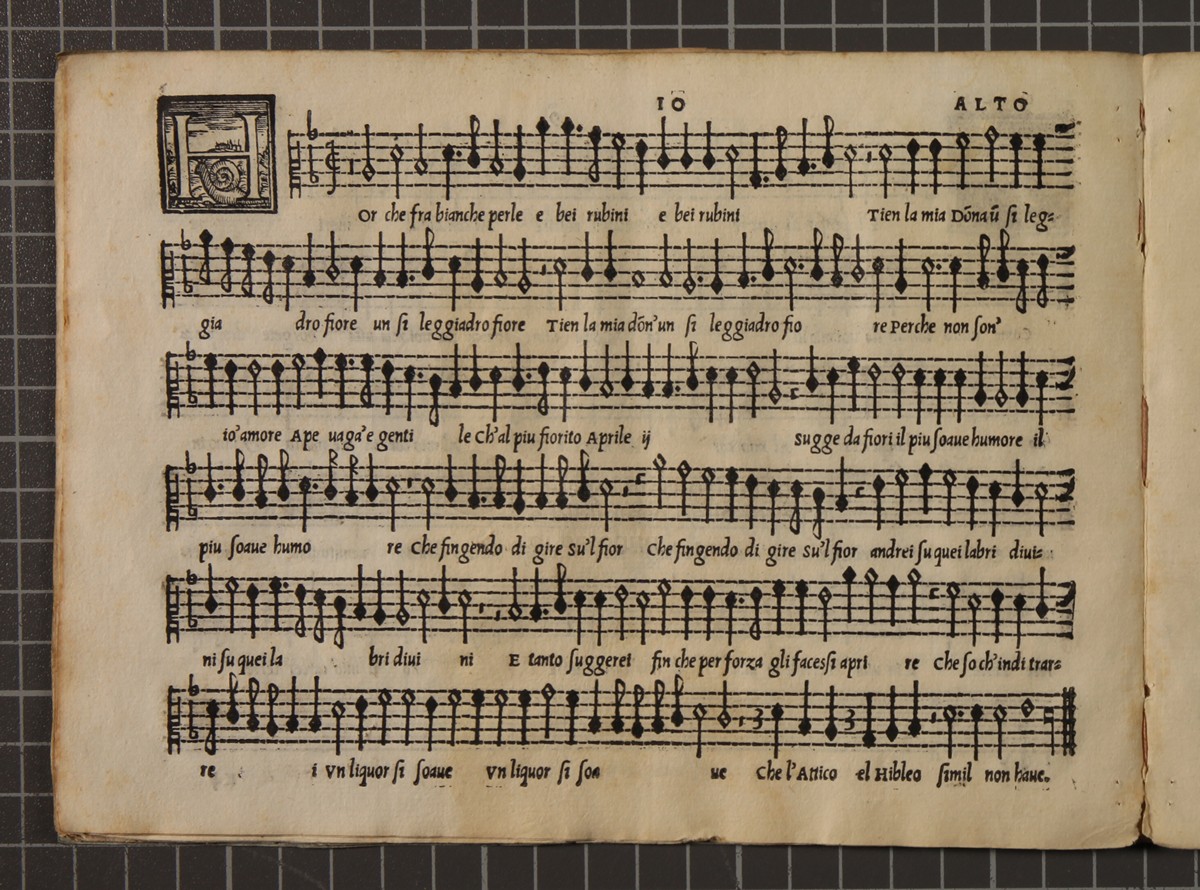 IO ALTO
HOr che fra bianche perle e bei rubini e bei rubini Tien la mia Dōna ū ſi leg=
gia dro fiore un ſi leggiadro fiore Tien la mia dōn'un ſi leggiadro fio re Perche non ſon'
io'amore Ape uaga'e genti le Ch'al piu fiorito Aprile ij sugge da fiori il piu ſoaue humore il
piu ſoaue humo re Che fingendo di gire Su'l fior Che fingendo di gire Su'l fior andrei ſu quei labri diui=
ni ſu quei la bri diui ni E tanto ſuggerei fin che per forza gli faceſsi apri re Che ſo ch'indi trar=
re i Vn liquor ſi ſoaue Vn liquor ſi ſoa ue Che l'Attico el Hibleo ſimil non haue.